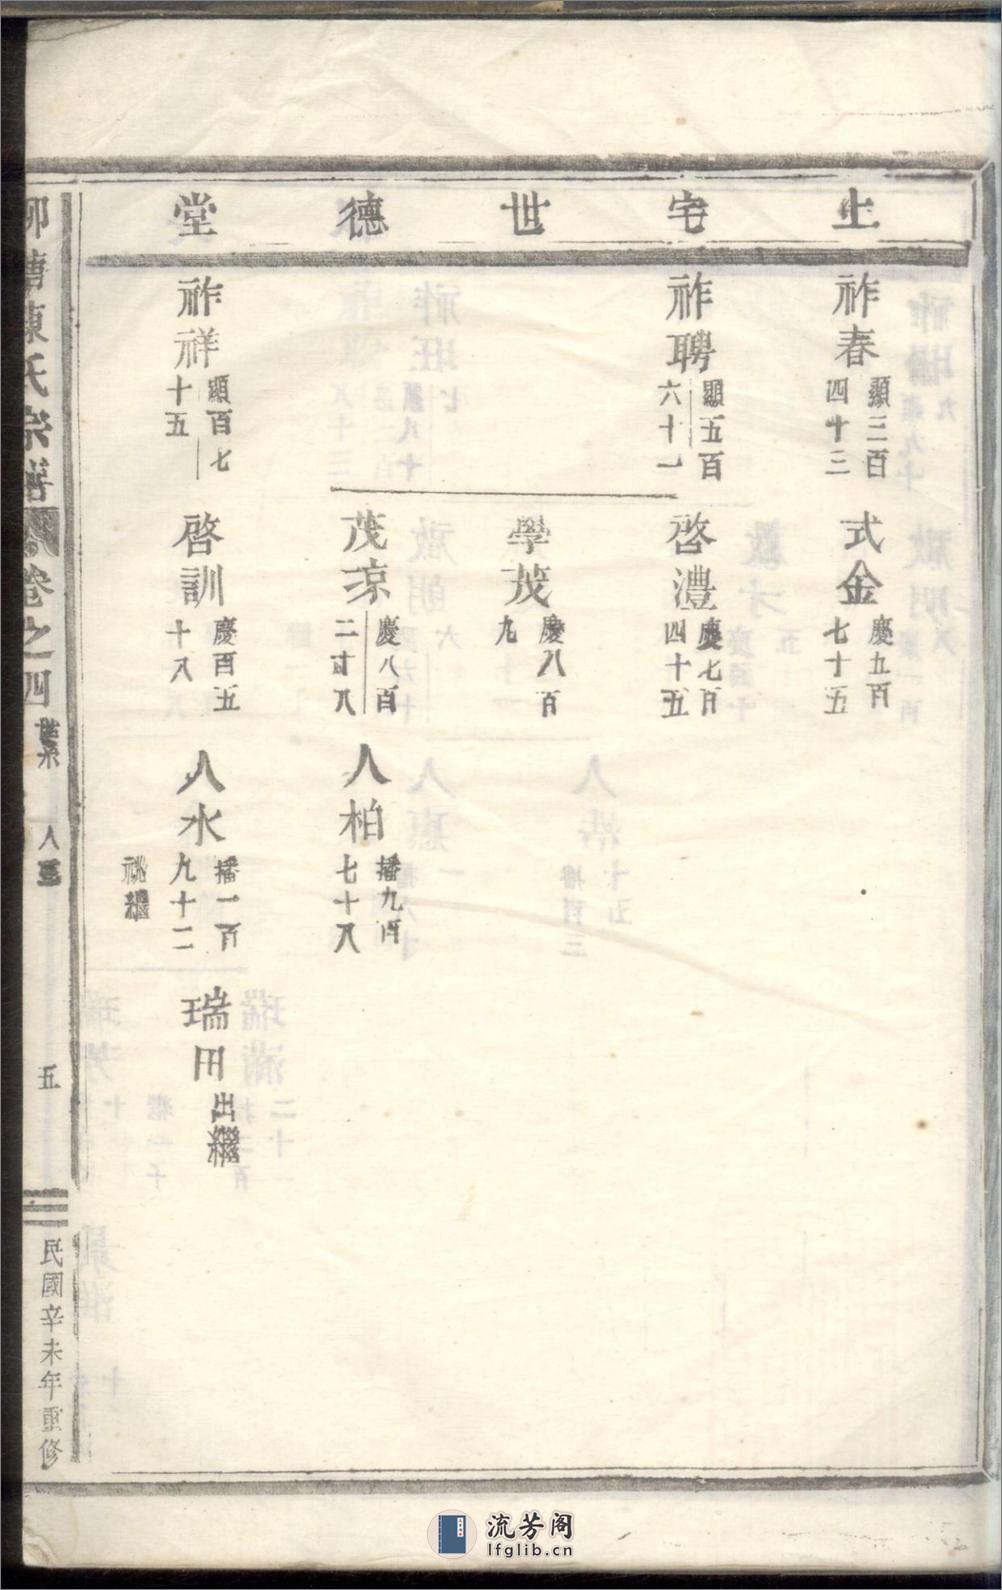 上宅世德堂
祚春 顯三百四十三
式金 慶五百七十五
祚聘 顯五百六十一
啓灃 慶七百四十五
學茂 慶八百九
茂凉 慶八百二十八
人柏 播九百七十八
祚祥 顯百七十五
啓訓 慶百五十八
人水 播一百九十二 祧繼
瑞田 出繼
陳氏宗譜 卷之四 世系 人 五 民國辛未年重修
流芳阁
lfglib.cn